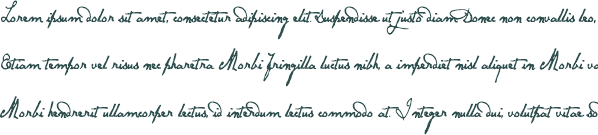 Lorem ipsum dolor sit amet, consectetur adipiscing elit. Suspendisse ut justo diam. Donec non convallis leo,
Etiam tempor vel risus nec pharetra Morbi fringilla luctus nibh, a imperdiet nisl aliquet in Morbi
Morbi hendrerit ullamcorper lectus, id interdum lectus commodo at. Integer nulla dui, volutpat vitae